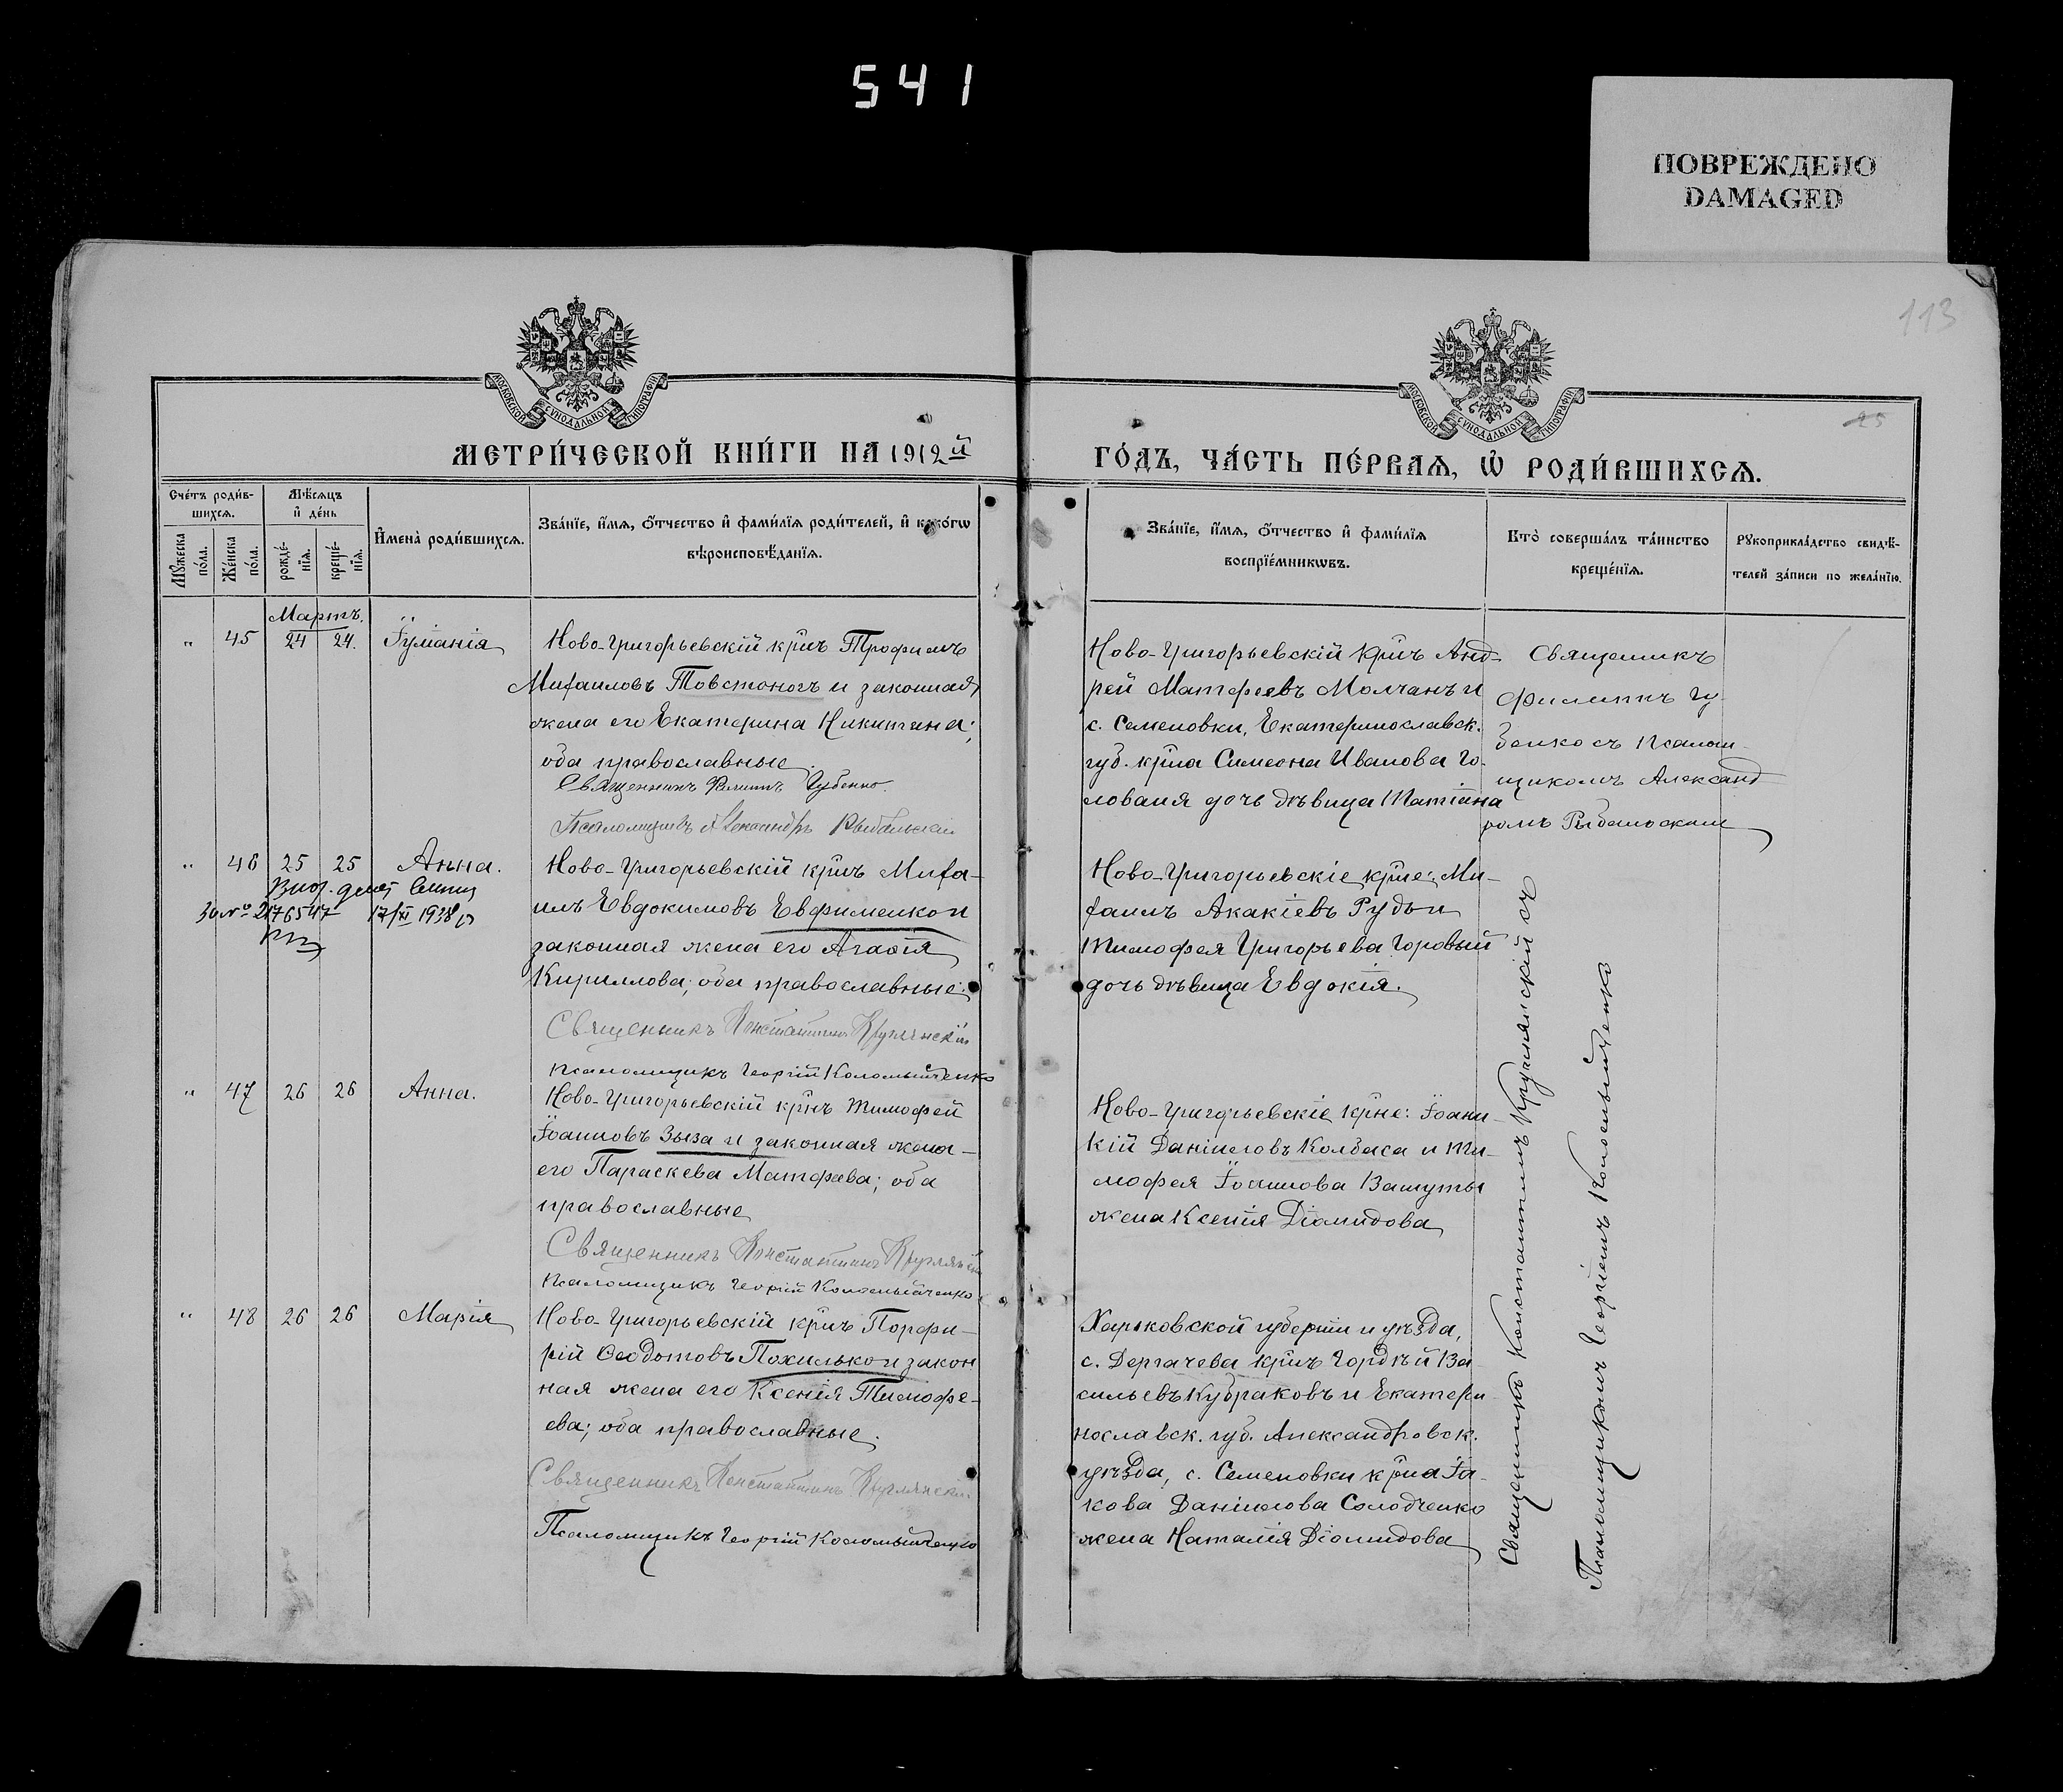 541
ПОВРЕЖДЕНО
DAMAGED
113
25
МОСКОВСКОЙ СУНОДАЛЬНОЙ ТИПОГРАФІИ
МОСКОВСКОЙ СУНОДАЛЬНОЙ ТИПОГРАФІИ
МЕТРИ́ЧЕСКОЙ КНИ́ГИ НА 1912й
ГО́ДЪ, ЧА́СТЬ ПЕ́РВАѦ, Ѡ҆ РОДИ́ВШИХСѦ.
Сче́тъ роди́в-
шихсѧ.
Мѣ́сѧцъ
и҆ де́нь
Мꙋ́жеска по́ла.
Же́нска по́ла.
рожде́-нїѧ.
креще́-нїѧ.
И҆мена̀ роди́вшихсѧ.
Зва́нїе, и҆́мѧ, ѻ҆́тчество и҆ фами́лїѧ роди́телей, и҆ како́гѡ
вѣроисповѣ́данїѧ.
Зва́нїе, и҆́мѧ, ѻ҆́тчество и҆ фами́лїѧ
воспрїе́мникѡвъ.
Кто̀ соверша́лъ та́инство
креще́нїѧ.
Рꙋкоприкла́дство свидѣ́-
телей за́писи по жела́нїю.
Мартъ.
" 45 24 24. Іуліанія
Ново-Григорьевскій кр̃нъ Трофимъ
Михаиловъ Товстоногъ и законная
жена его Екатерина Никитина;
оба православные.
Священникъ Филиппъ Губенко.
Псаломщикъ Александръ Рыбальскій
Ново-Григорьевскій кр̃нъ Анд-
рей Матфеевъ Молчанъ и
с. Семеновки, Екатеринославск.
губ. кр̃на Симеона Иванова Го-
лованя дочь дѣвица Татіана
Священникъ
Филиппъ Гу-
бенко съ псалом-
щикомъ Александ
ромъ Рыбальским
" 46 25 25 Анна.
№ 2176547 17/XI 1938
Ново-Григорьевскій кр̃нъ Миха-
илъ Евдокимовъ Евфименко и
законная жена его Агафія
Кириллова; оба православные.
Священникъ Константинъ Круглянскій
Псаломщикъ Георгій Коломыйченко
Ново-Григорьевскіе кр̃не: Ми-
хаилъ Акакіевъ Рудь и
Тимофея Григорьева Горовый
дочь дѣвица Евдокія.
" 47 26 26 Анна.
Ново-Григорьевскій кр̃нъ Тимофей
Іоанновъ Зыза и законная жена
его Параскева Матфеева; оба
православные
Священникъ Константинъ Круглянскій
Псаломщикъ Георгій Коломыйченко
Ново-Григорьевскіе кр̃не: Іоанни-
кій Даніиловъ Колбаса и Ти-
мофея Іоаннова Вашуты
жена Ксенія Діомидова
" 48 26 26 Марія
Ново-Григорьевскій кр̃нъ Порфи-
рій Ѳеодотовъ Похилько и закон
ная жена его Ксенія Тимофе-
ева; оба православные.
Священникъ Константинъ Круглянскій
Псаломщикъ Георгій Коломыйченко
Харьковской губерніи и уѣзда,
с. Дергачева кр̃нъ Гордѣй Ва-
сильевъ Кубраковъ и Екатери-
нославск. губ. Александровск.
уѣзда, с. Семеновки кр̃на Іа-
кова Даніилова Солодченко
жена Наталія Діомидова
Священникъ Константинъ Круглянскій съ
Псаломщикомъ Георгіемъ Коломыйченко